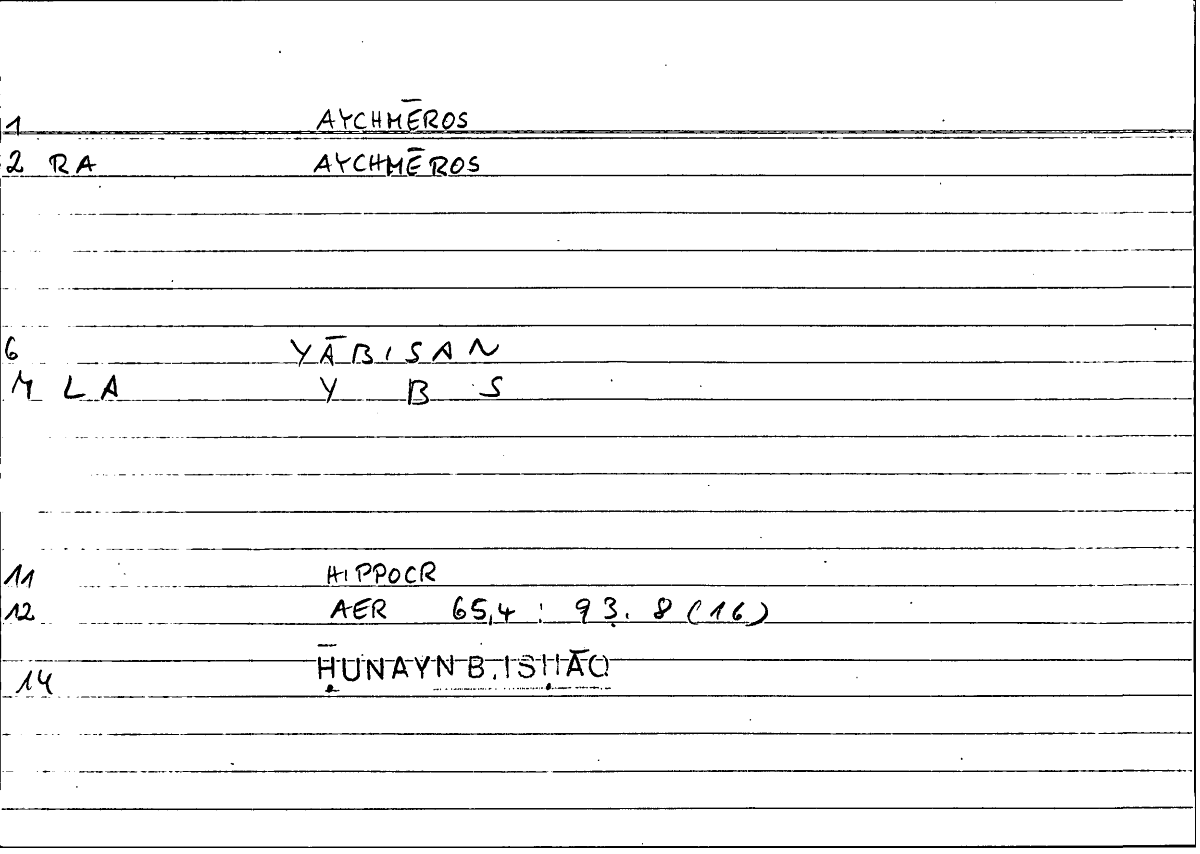 1 AYCHMĒROS
2 RA AYCHMĒROS
6 YĀBISAN
M LA Y B S
11 HIPPOCR
12 AER 65,4 : 93. 8 (16)
14 ḤUNAYN B. ISḤĀQ